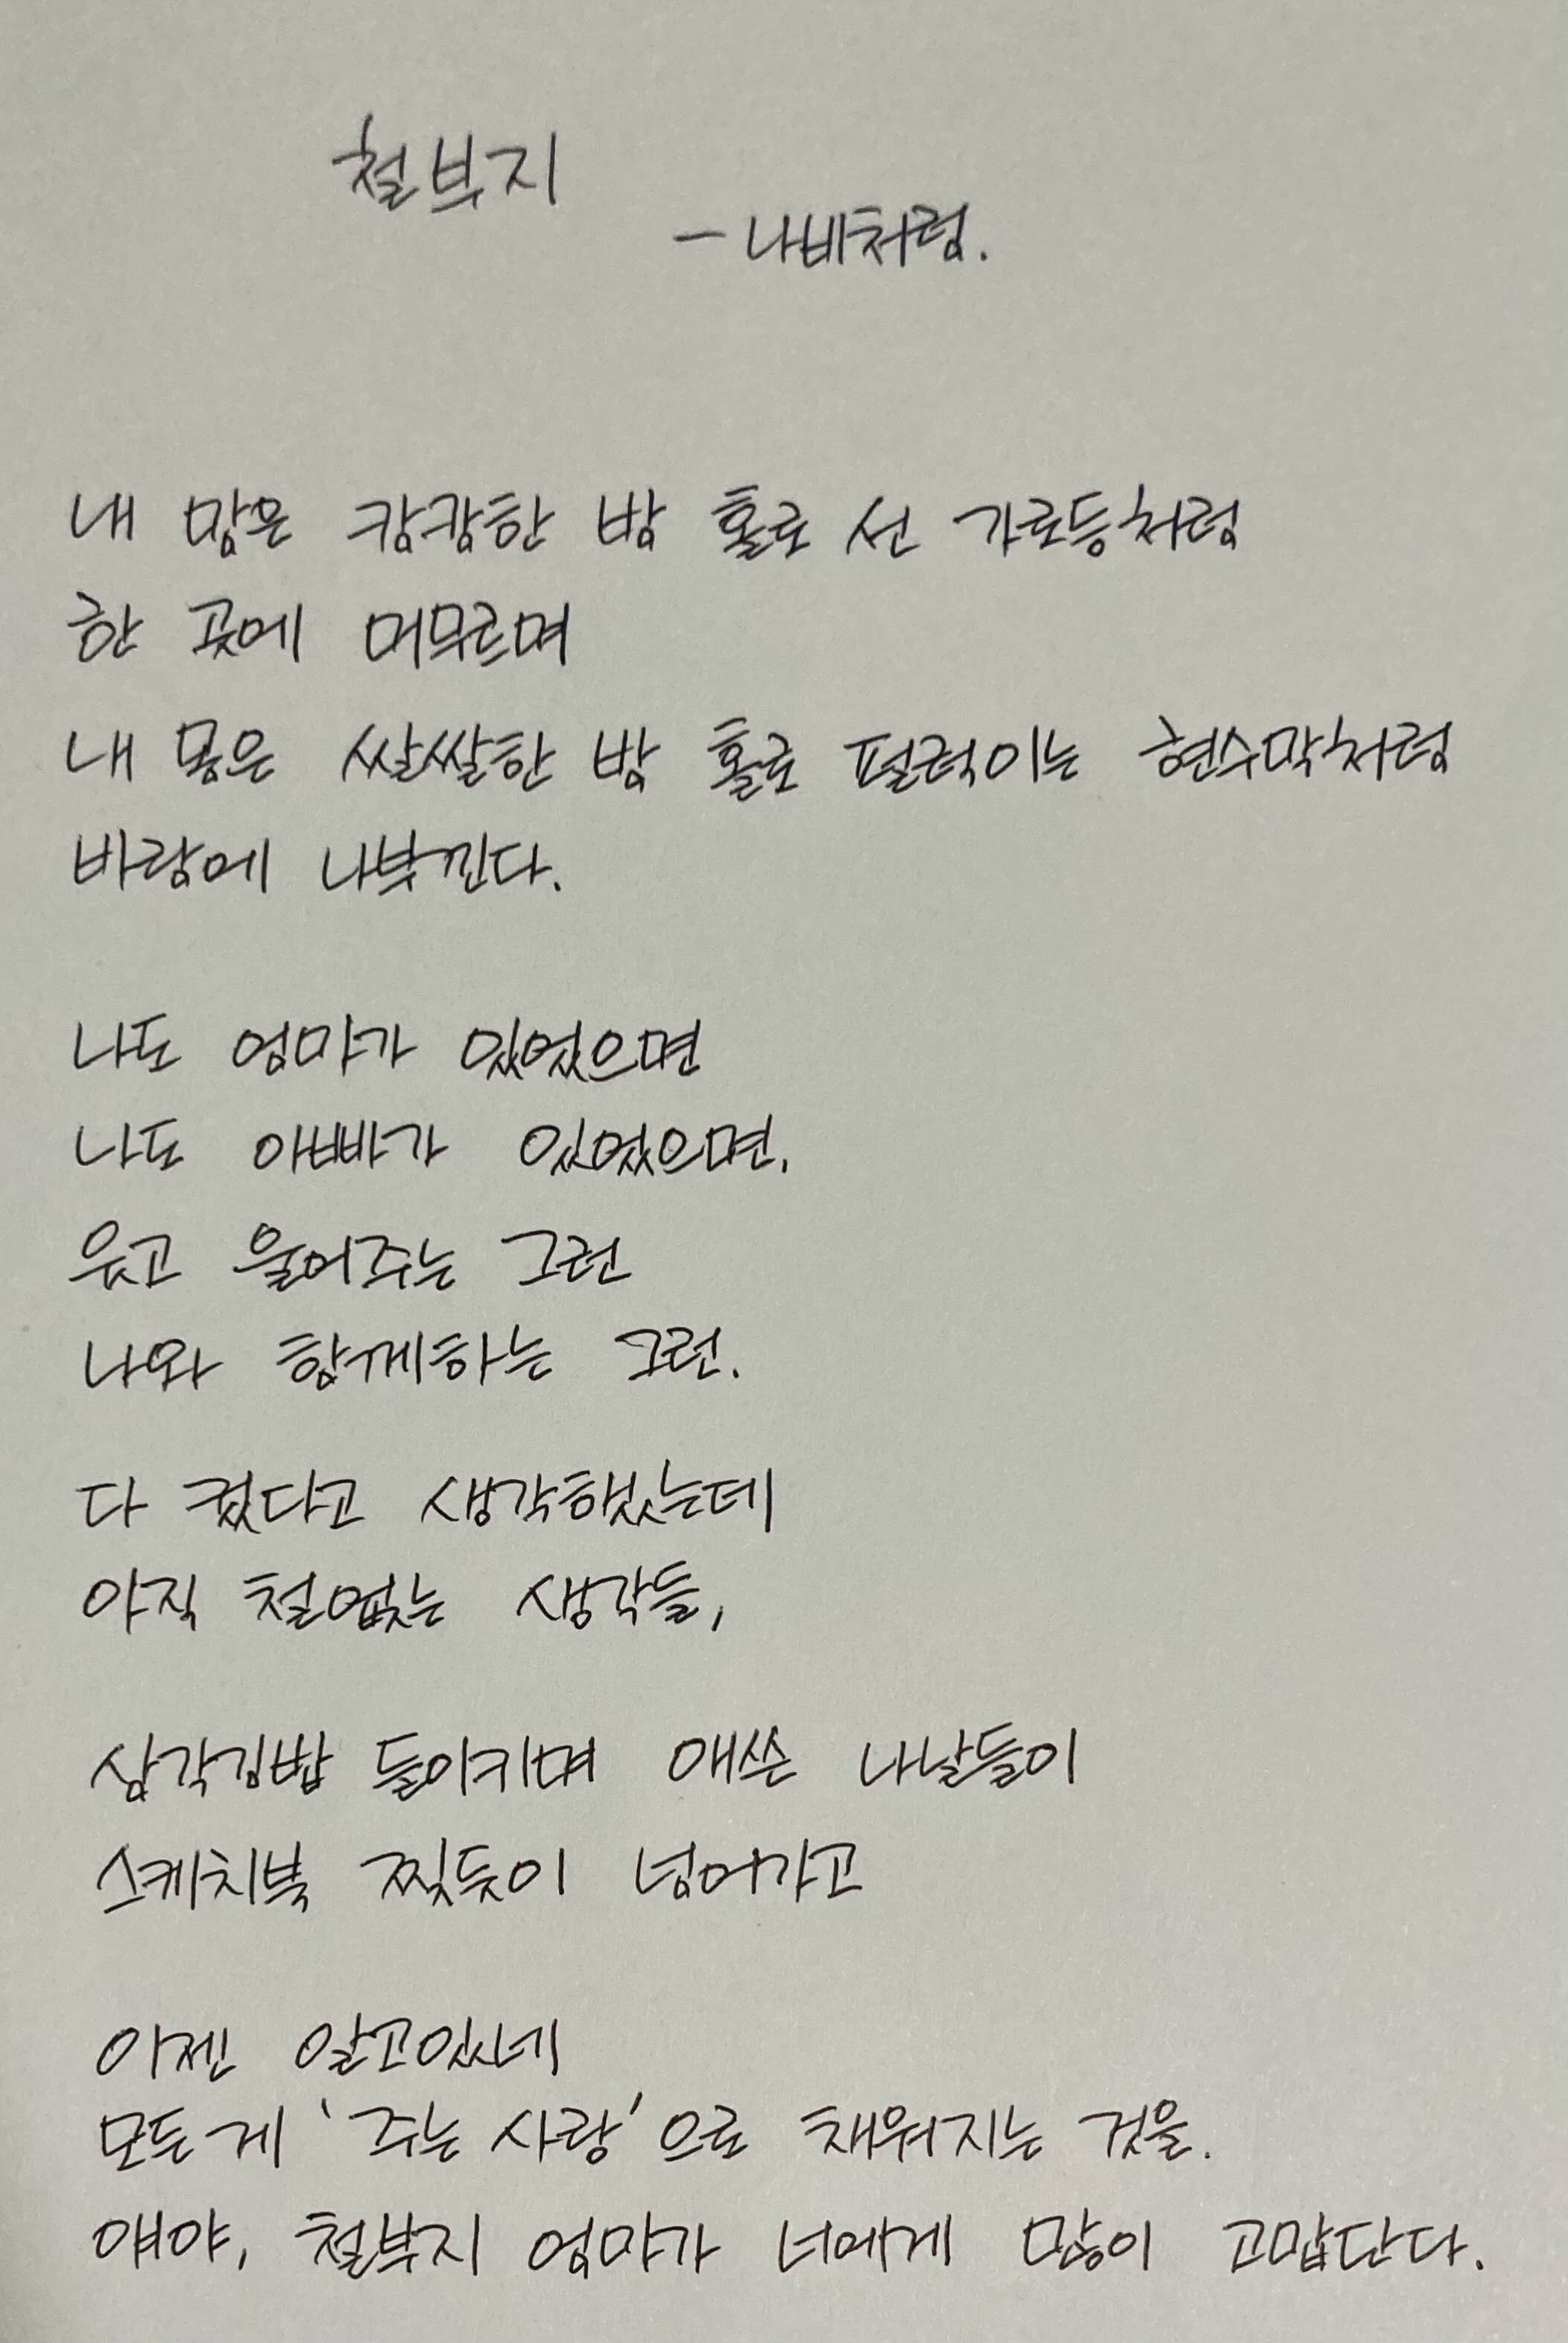 철부지
- 나비처럼.
내 맘은 캄캄한 밤 홀로 선 가로등처럼
한 곳에 머무르며
내 몸은 쌀쌀한 밤 홀로 펄럭이는 현수막처럼
바람에 나부낀다.
나도 엄마가 있었으면
나도 아빠가 있었으면.
웃고 울어주는 그런
나와 함께하는 그런.
다 컸다고 생각했는데
아직 철없는 생각들,
삼각김밥 들이키며 애쓴 나날들이
스케치북 찢듯이 넘어가고
이젠 알고있네
모든게 '주는 사랑'으로 채워지는 것을.
얘야, 철부지 엄마가 너에게 많이 고맙단다.